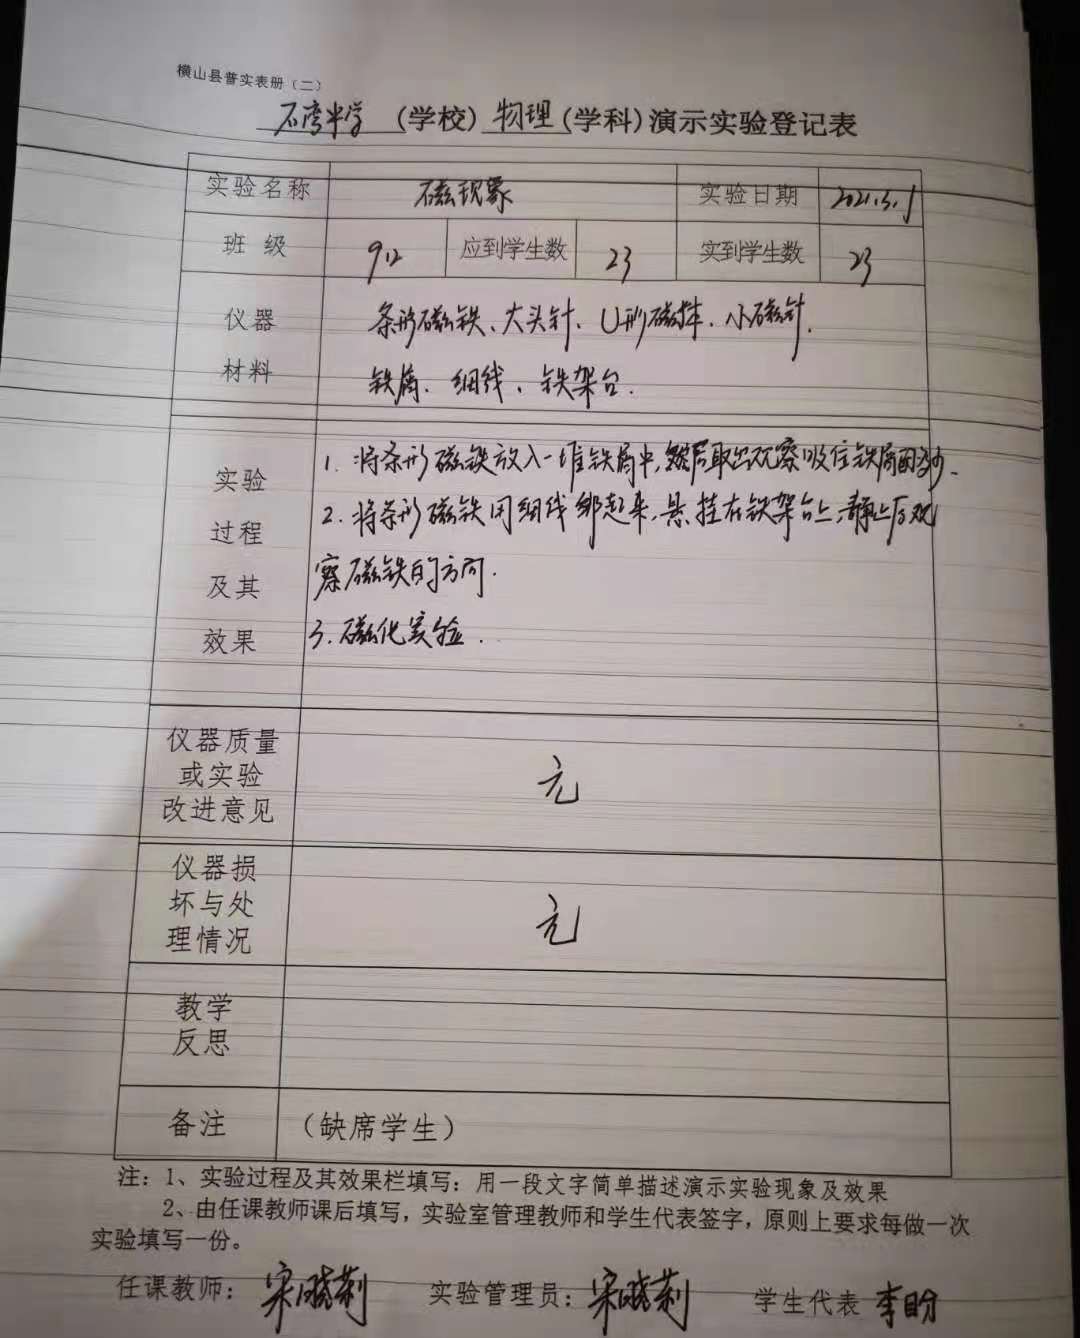 横山县普实表册（二）
石湾中学（学校）物理（学科）演示实验登记表
实验名称 磁现象 实验日期 2021.3.1
班 级 9.12 应到学生数 23 实到学生数 23
仪器 条形磁铁、大头针、U形磁体、小磁针、
材料 铁屑、细线、铁架台.
实验 1. 将条形磁铁放入一堆铁屑中,然后取出观察吸住铁屑的多少.
过程 2. 将条形磁铁用细线绑起来,悬挂在铁架台上,静止后观
及其 察磁铁的方向.
效果 3. 磁化实验.
仪器质量
或实验 无
改进意见
仪器损
坏与处 无
理情况
教学
反思
备注 （缺席学生）
注：1、实验过程及其效果栏填写：用一段文字简单描述演示实验现象及效果
2、由任课教师课后填写，实验室管理教师和学生代表签字，原则上要求每做一次
实验填写一份。
任课教师：宋晓莉 实验管理员：宋晓莉 学生代表 李盼